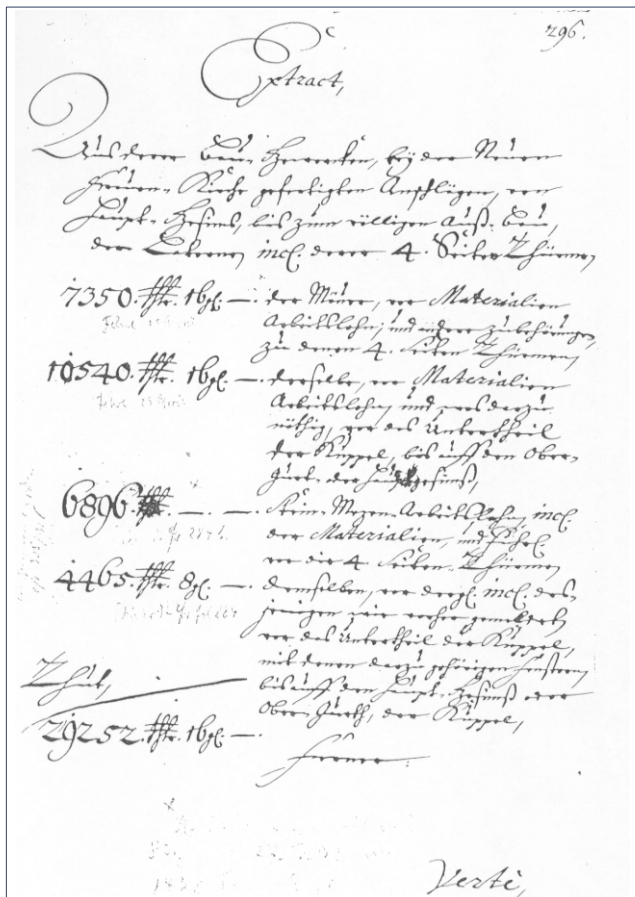 296.
Extract,
Aus derer Bau-Gewercken, bey der Neuen
Frauen-Kirche gefertigten Anschlägen, von
Haupt-Gesims, bis zum völligen Auß-Bau,
der Laterne, incl. derer 4. Seiten Thürmen,
7350. thlr. 16 gl. — der Mäurer, vor Materialien
Arbeitslohn, und andere Zubehörungen,
zu denen 4. Seiten Thürmen,
10540. thlr. 16 gl. — derselbe, vor Materialien
Arbeitslohn, und was darzu
nöthig, vor das Untertheil
der Kuppel, bis auff den Ober-
gurt der Hauptgesims,
6896. thlr. — — Stein-Mezen-Arbeitslohn, incl.
der Materialien, und Fuhrl.
vor die 4. Seiten-Thürmen
4465. thlr. 8 gl. — demselben, vor dergl. incl. des-
jenigen wie vorher gemeldet,
vor das Untertheil der Kuppel,
mit denen darzu gehörigen Fenstern,
bis auff den Haupt-Gesimß oder
Ober-Gurth, der Kuppel,
Thut,
29252. thlr. 16 gl. —
Ferner
Verte,